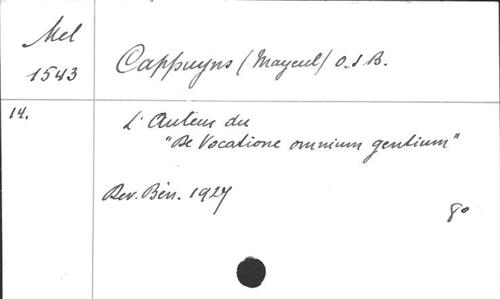 Mel
1543
Cappuyns (Mayeul) O.S.B.
14.
L'Auteur du
"De Vocatione omnium gentium"
Rev. Bén. 1927
8º